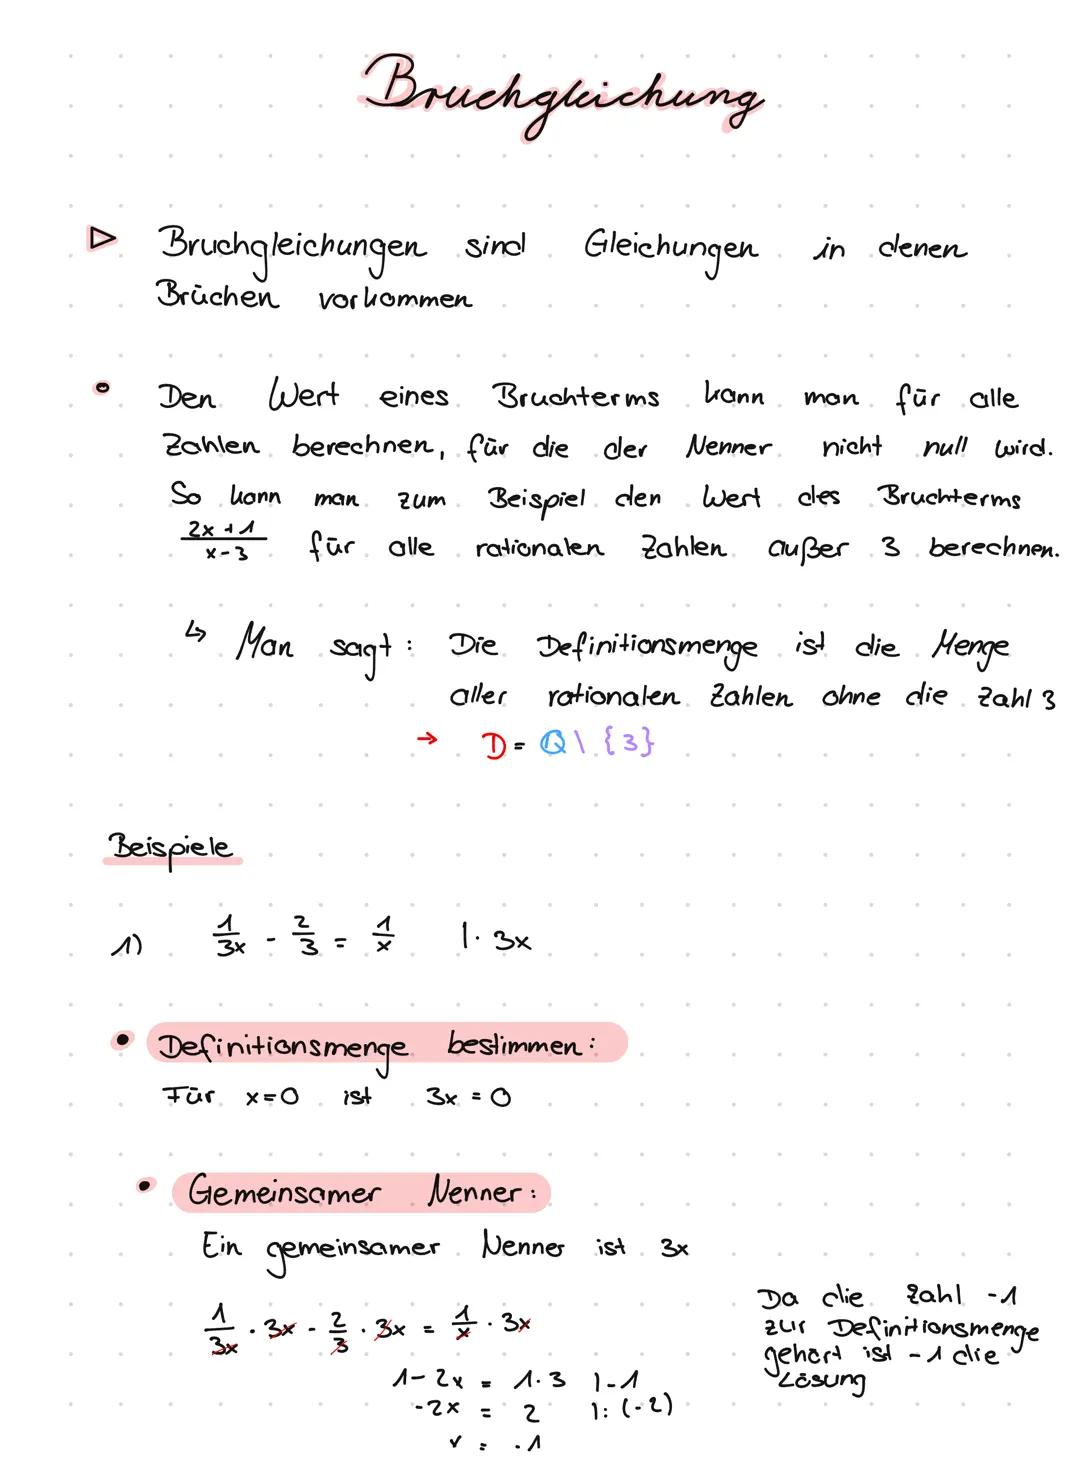 Bruchgleichung
▷ Bruchgleichungen sind Gleichungen in denen
Brüchen vorkommen
• Den Wert eines Bruchterms kann man für alle
Zahlen berechnen, für die der Nenner nicht null wird.
So kann man zum Beispiel den Wert des Bruchterms
(2x+1)/(x-3) für alle rationalen Zahlen außer 3 berechnen.
↳ Man sagt: Die Definitionsmenge ist die Menge
aller rationalen Zahlen ohne die Zahl 3
→ D = Q \ {3}
Beispiele
1) 1/3x - 2/3 = 1/x |· 3x
• Definitionsmenge bestimmen:
Für x=0 ist 3x = 0
• Gemeinsamer Nenner:
Ein gemeinsamer Nenner ist 3x
1/3x · 3x - 2/3 · 3x = 1/x · 3x
1 - 2x = 1·3 |-1
-2x = 2 |: (-2)
x = -1
Da die Zahl -1
zur Definitionsmenge
gehört ist -1 die
Lösung